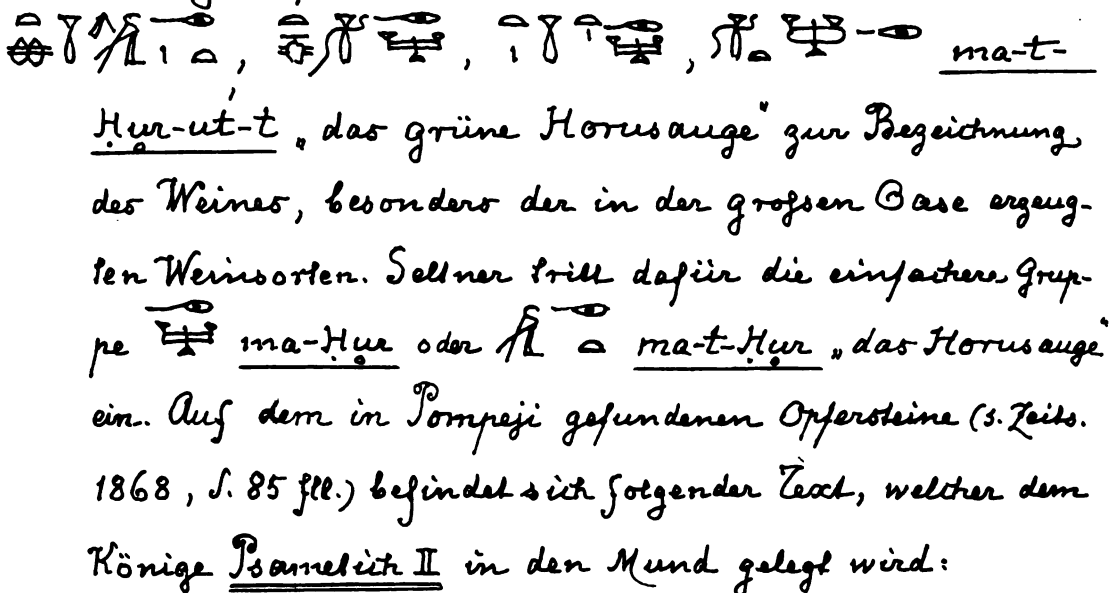 ma-t-
Ḥur-ut-t „das grüne Horusauge“ zur Bezeichnung
des Weines, besonders der in der großen Oase erzeug-
ten Weinsorten. Seltner tritt dafür die einfachere Grup-
pe ma-Ḥur oder ma-t-Ḥur „das Horusauge“
ein. Auf dem in Pompeji gefundenen Opfersteine (s. Zeits.
1868, S. 85 fll.) befindet sich folgender Text, welcher dem
Könige Psametich II in den Mund gelegt wird: